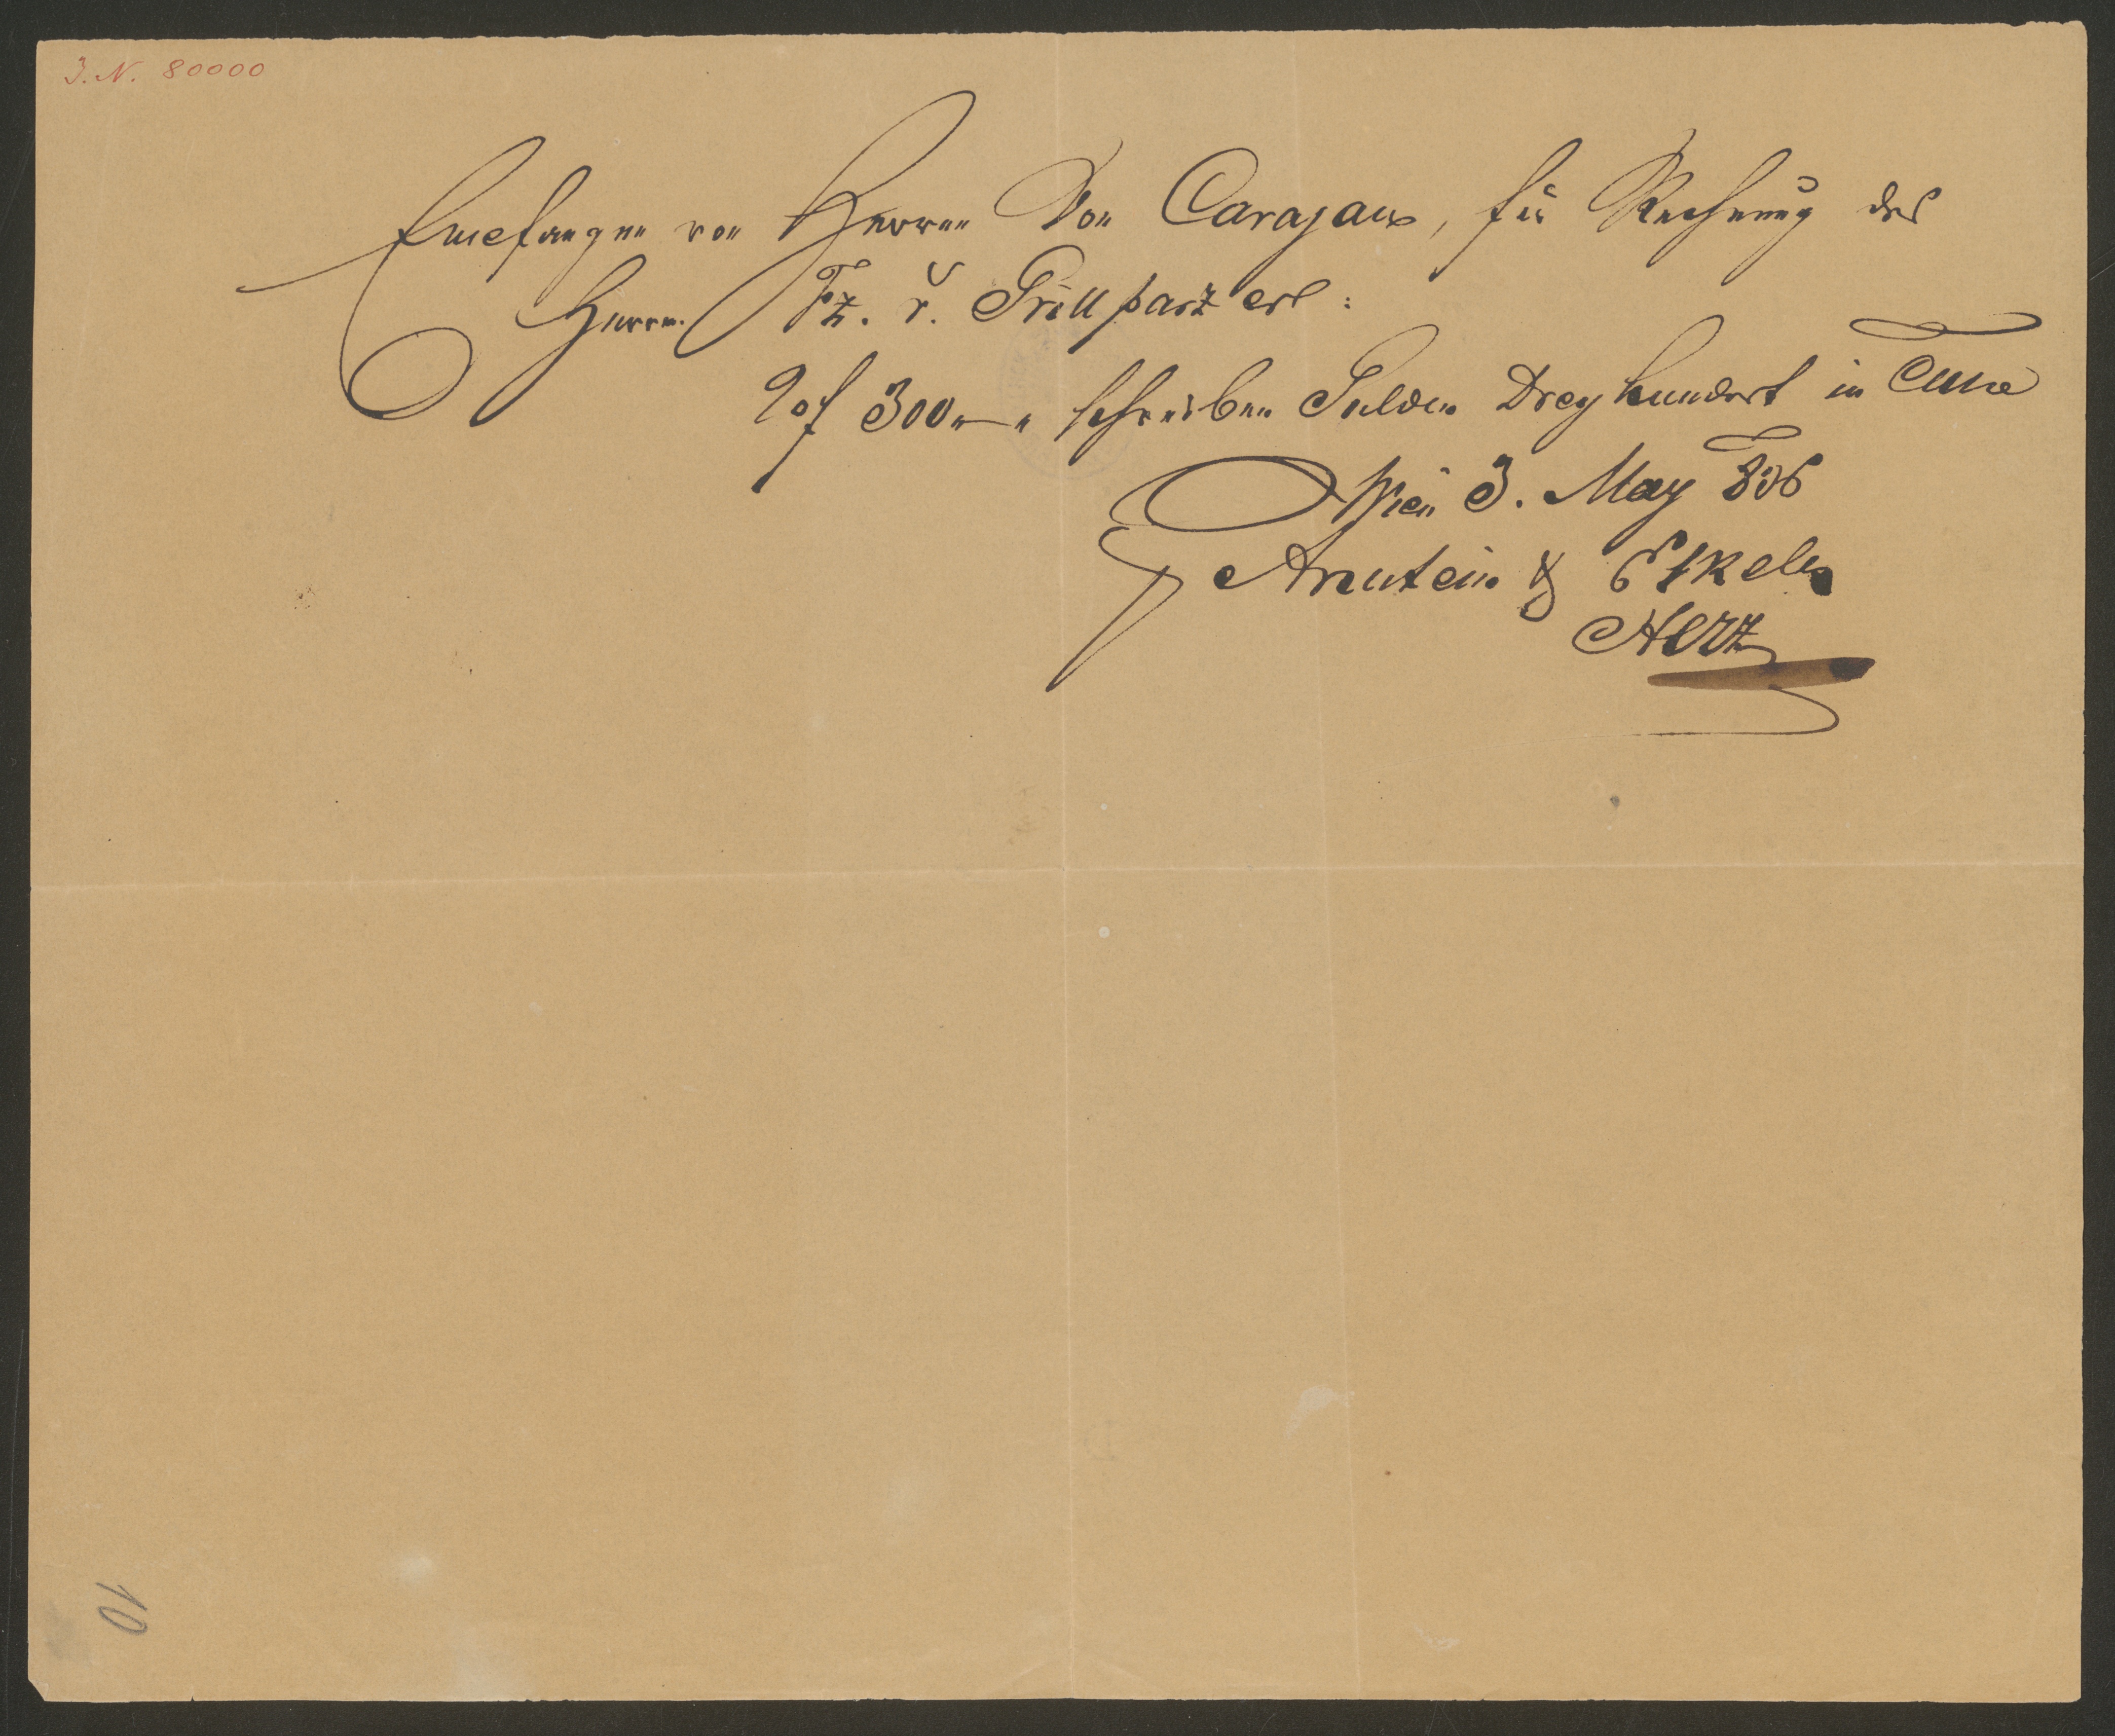 J. N. 80000
Empfangen von Herren Von Carajan, für Rechnung des
Herrn Fz. v. Grillparzer:
f 300 „—„ schreiben Gulden Dreyhundert in
Wien 3. May 836
Arnstein & Eskeles
Herz
10